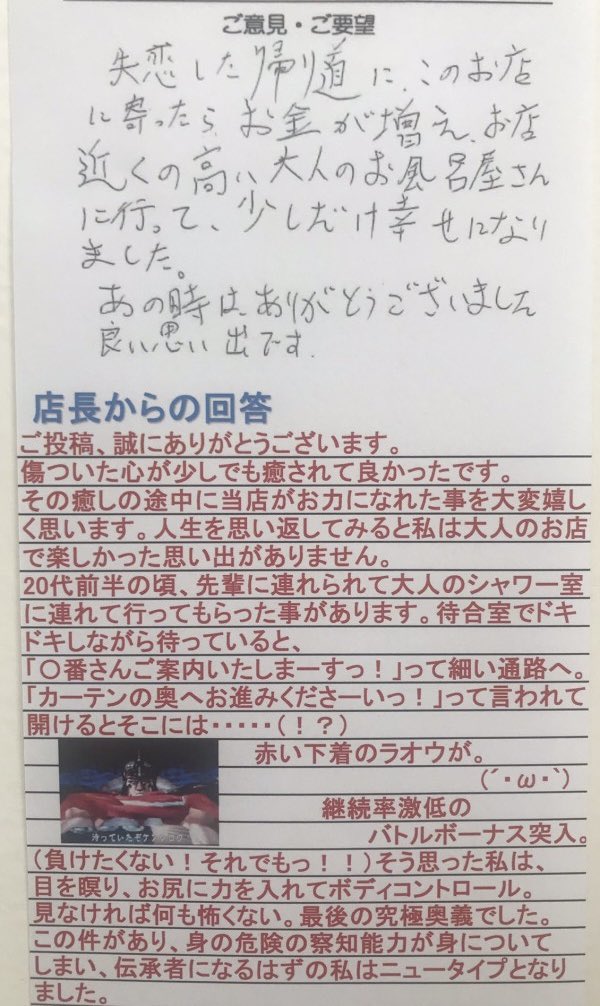 ご意見・ご要望
失恋した帰り道に、このお店
に寄ったら、お金が増え、お店
近くの高い大人のお風呂屋さん
に行って、少しだけ幸せになり
ました。
あの時は、ありがとうございました
良い思い出です.
店長からの回答
ご投稿、誠にありがとうございます。
傷ついた心が少しでも癒されて良かったです。
その癒しの途中に当店がお力になれた事を大変嬉し
く思います。人生を思い返してみると私は大人のお店
で楽しかった思い出がありません。
20代前半の頃、先輩に連れられて大人のシャワー室
に連れて行ってもらった事があります。待合室でドキ
ドキしながら待っていると、
「〇番さんご案内いたしまーすっ！」って細い通路へ。
「カーテンの奥へお進みくださーいっ！」って言われて
開けるとそこには・・・・・（！？）
赤い下着のラオウが。
（´・ω・`）
継続率激低の
バトルボーナス突入。
待っていたぞケンシロウ
（負けたくない！それでもっ！！）そう思った私は、
目を瞑り、お尻に力を入れてボディコントロール。
見なければ何も怖くない。最後の究極奥義でした。
この件があり、身の危険の察知能力が身について
しまい、伝承者になるはずの私はニュータイプとなり
ました。